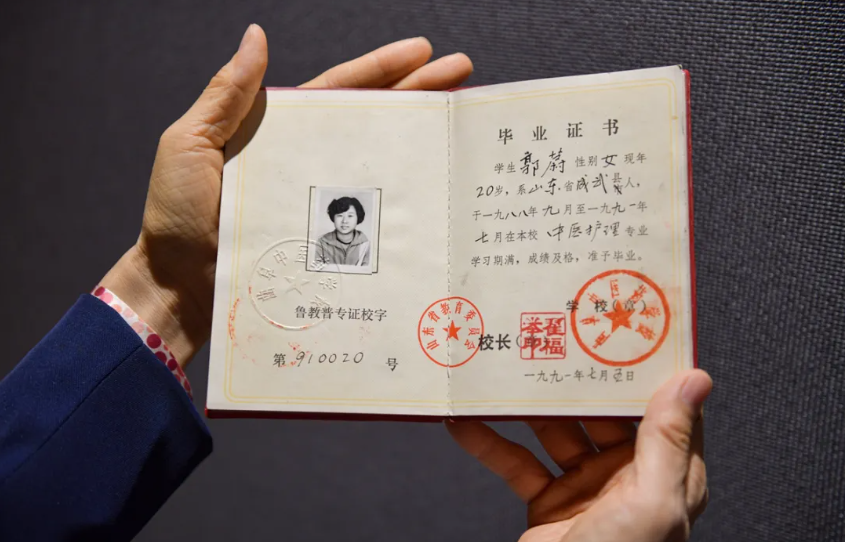 鲁教普专证校字
第 910020 号
毕业证书
学生 郭蔚 性别 女 现年
20岁，系山东省成武县人，
于一九八八年九月至一九九一年
七月在本校 中医护理 专业
学习期满，成绩及格，准予毕业。
学校(章)
山东省教育委员会
校长
一九九一年七月 日